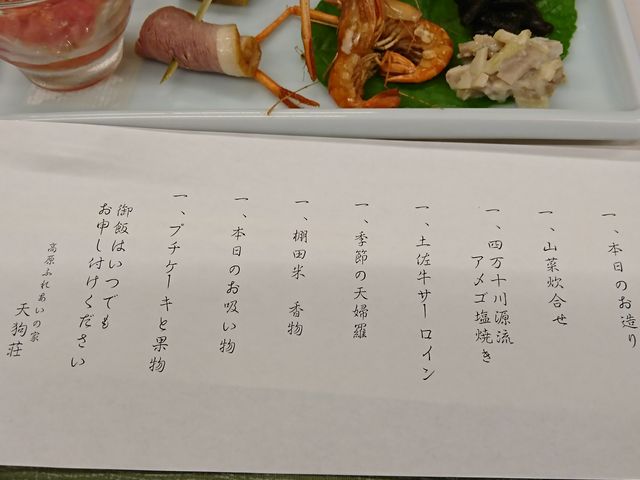 一、本日のお造り
一、山菜炊合せ
一、四万十川源流
アメゴ塩焼き
一、土佐牛サーロイン
一、季節の天婦羅
一、棚田米 香物
一、本日のお吸い物
一、プチケーキと果物
御飯はいつでも
お申し付けください
高原ふれあいの家
天狗荘